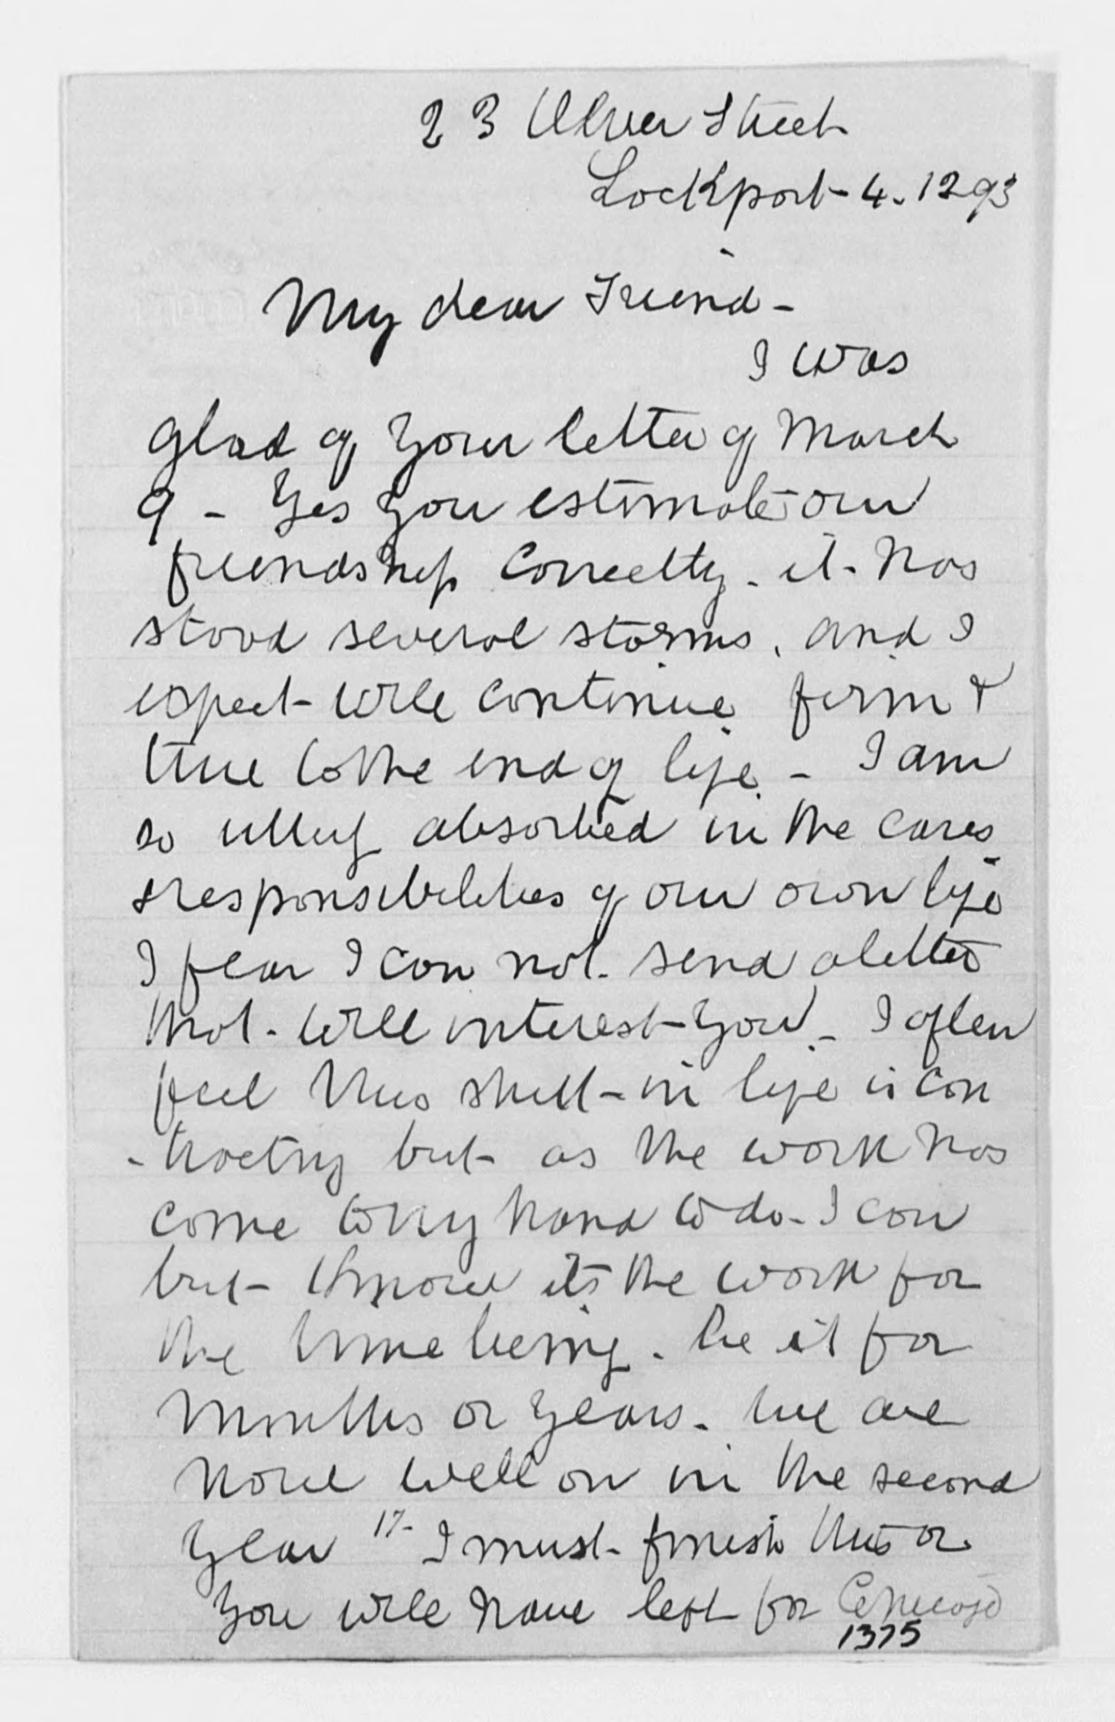 23 Oliver Street
Lockport - 4. 12 93
My dear Friend -
I was
glad of your letter of March
9 - Yes you estimate our
friendship correctly. it has
stood several storms, and I
expect will continue firm &
true to the end of life - I am
so utterly absorbed in the cares
& responsibilities of our own life
I fear I can not send a letter
that will interest you - I often
feel this shutt-in life is con
-tracting but as the work has
come to my hand to do - I can
but know its the work for
the time being. be it for
months or years. We are
now well on in the second
year 17- I must finish this or
you will have left for Chicago
1375